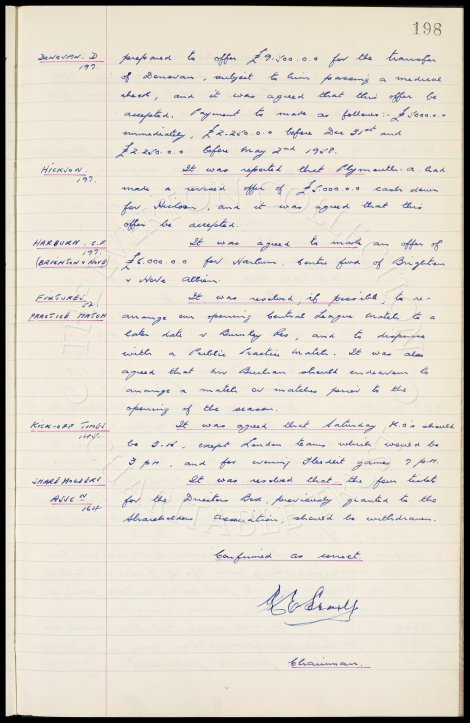 198
DONOVAN. D
197.
prepared to offer £9.500.0.0 for the transfer
of Donovan, subject to him passing a medical
check, and it was agreed that this offer be
accepted. Payment to made as follows:- £5000.0.0
immediately, £2.250.0.0 before Dec 31st and
£2.250.0.0 before May 2nd 1958.
HICKSON.
197.
It was reported that Plymouth. A. had
made a revised offer of £5.000.0.0 cash down
for Hickson, and it was agreed that this
offer be accepted.
HARBURN. C.F
197.
(BRIGHTON & HOVE)
It was agreed to make an offer of
£6.000.0.0 for Harburn, Centre fwd of Brighton
& Hove Albion.
FIXTURES.
PRACTICE MATCH
It was resolved, if possible, to re-
arrange our opening Central League match to a
later date v Burnley Res, and to dispense
with a Public Practice match. It was also
agreed that Mr Buchan should endeavour to
arrange a match or matches prior to the
opening of the season.
KICK-OFF TIMES
145.
It was agreed that Saturday K.O's should
be 3.15, except London teams which would be
3 p.m, and for evening Floodlit games 7 p.m.
SHARE HOLDERS
ASSCN
164
It was resolved that the four tickets
for the Directors Box, previously granted to the
Shareholders Association should be withdrawn.
Confirmed as correct.
Chairman.